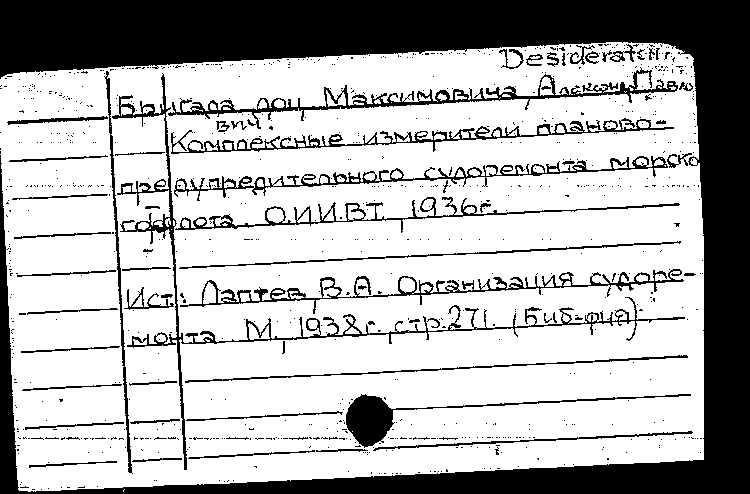 Desiderata
Бригада доц. Максимовича, Александр Павло
вич.
Комплексные измерители планово-
предупредительного судоремонта морско
гофлота. О.И.И.В.Т., 1936г.
Ист.: Лаптев, В.А. Организация судоре-
монта. М., 1938г., стр.271. (Биб-фия).